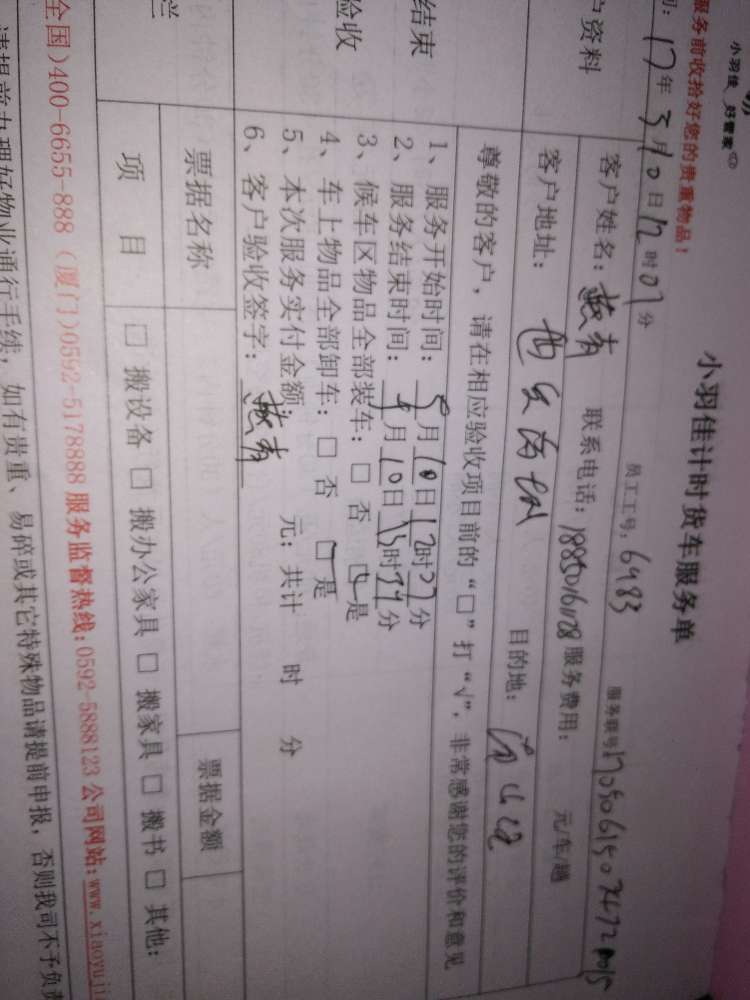 小羽佳 好管家
服务前收拾好您的贵重物品！
小羽佳计时货车服务单
17年5月10日12时07分
员工工号：6483
户资料
客户姓名： 联系电话：18850161128 服务费用： 元/车/趟
客户地址： 目的地：
尊敬的客户，请在相应验收项目前的“□”打“√”，非常感谢您的评价和意见
结束
验收
1、服务开始时间：5月10日12时27分
2、服务结束时间：5月10日15时37分
3、候车区物品全部装车：□否 □是
4、车上物品全部卸车：□否 □是
5、本次服务实付金额 元；共计 时 分
6、客户验收签字：
票据名称 票据金额
项目 □搬设备 □搬办公家具 □搬家具 □搬书 □其他：
全国)400-6655-888 (厦门)0592-5178888 服务监督热线：0592-5888123 公司网站：www.xiaoyuji
请提前办理好物业通行手续，如有贵重、易碎或其它特殊物品请提前申报，否则我司不予负责